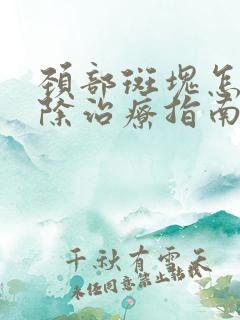 颈部斑塊怎
除治療指南
千秋有雲天
未经同意禁止转载